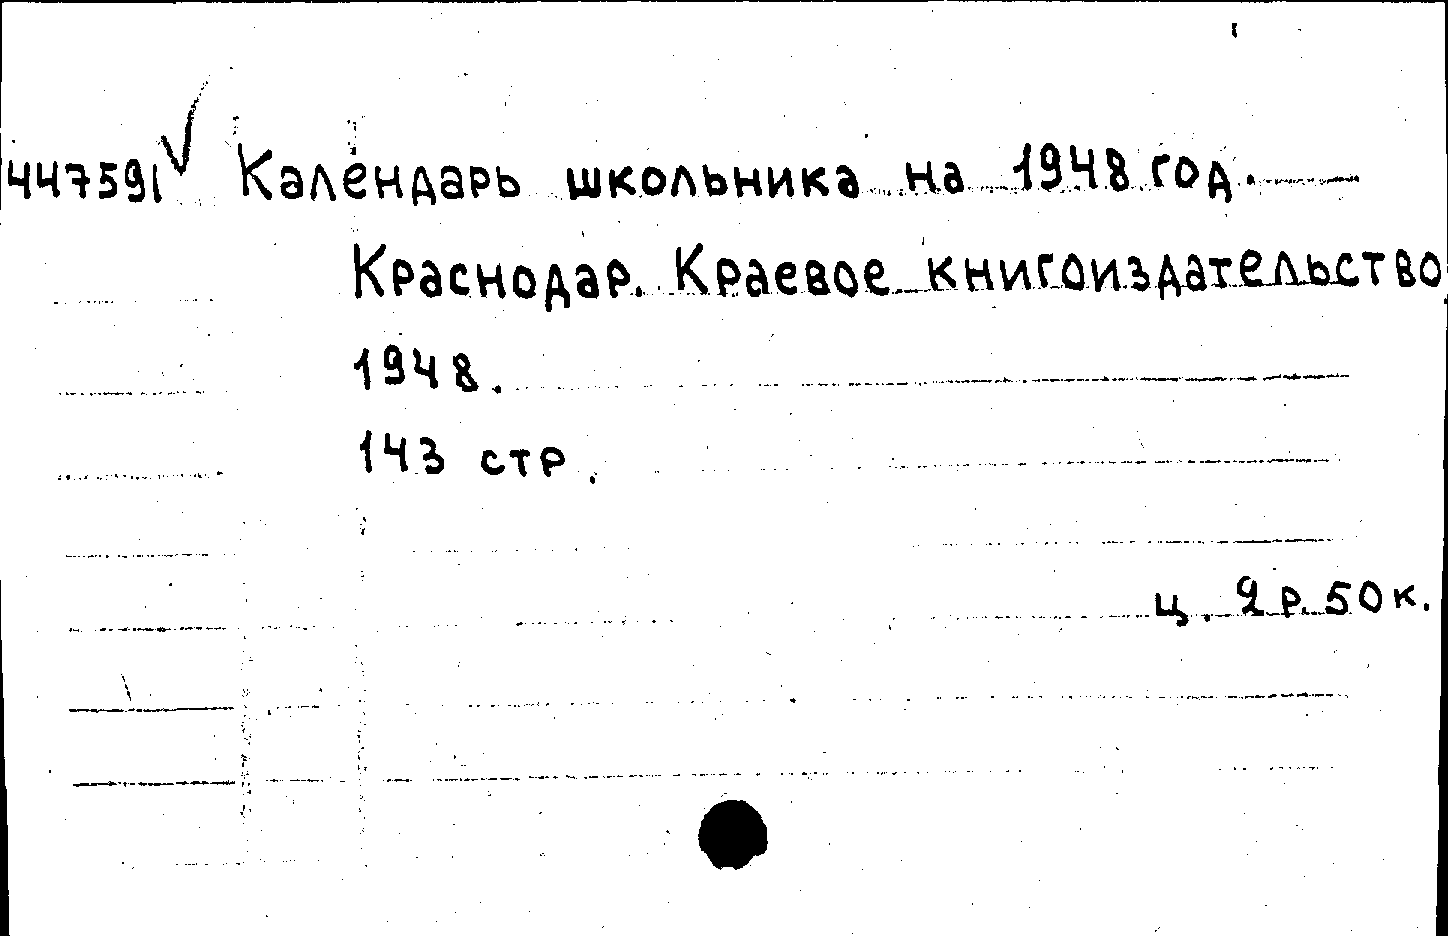 447591 Календарь школьника на 1948 год.
Краснодар. Краевое книгоиздательство
1948.
143 стр.
ц. 2 р. 50 к.